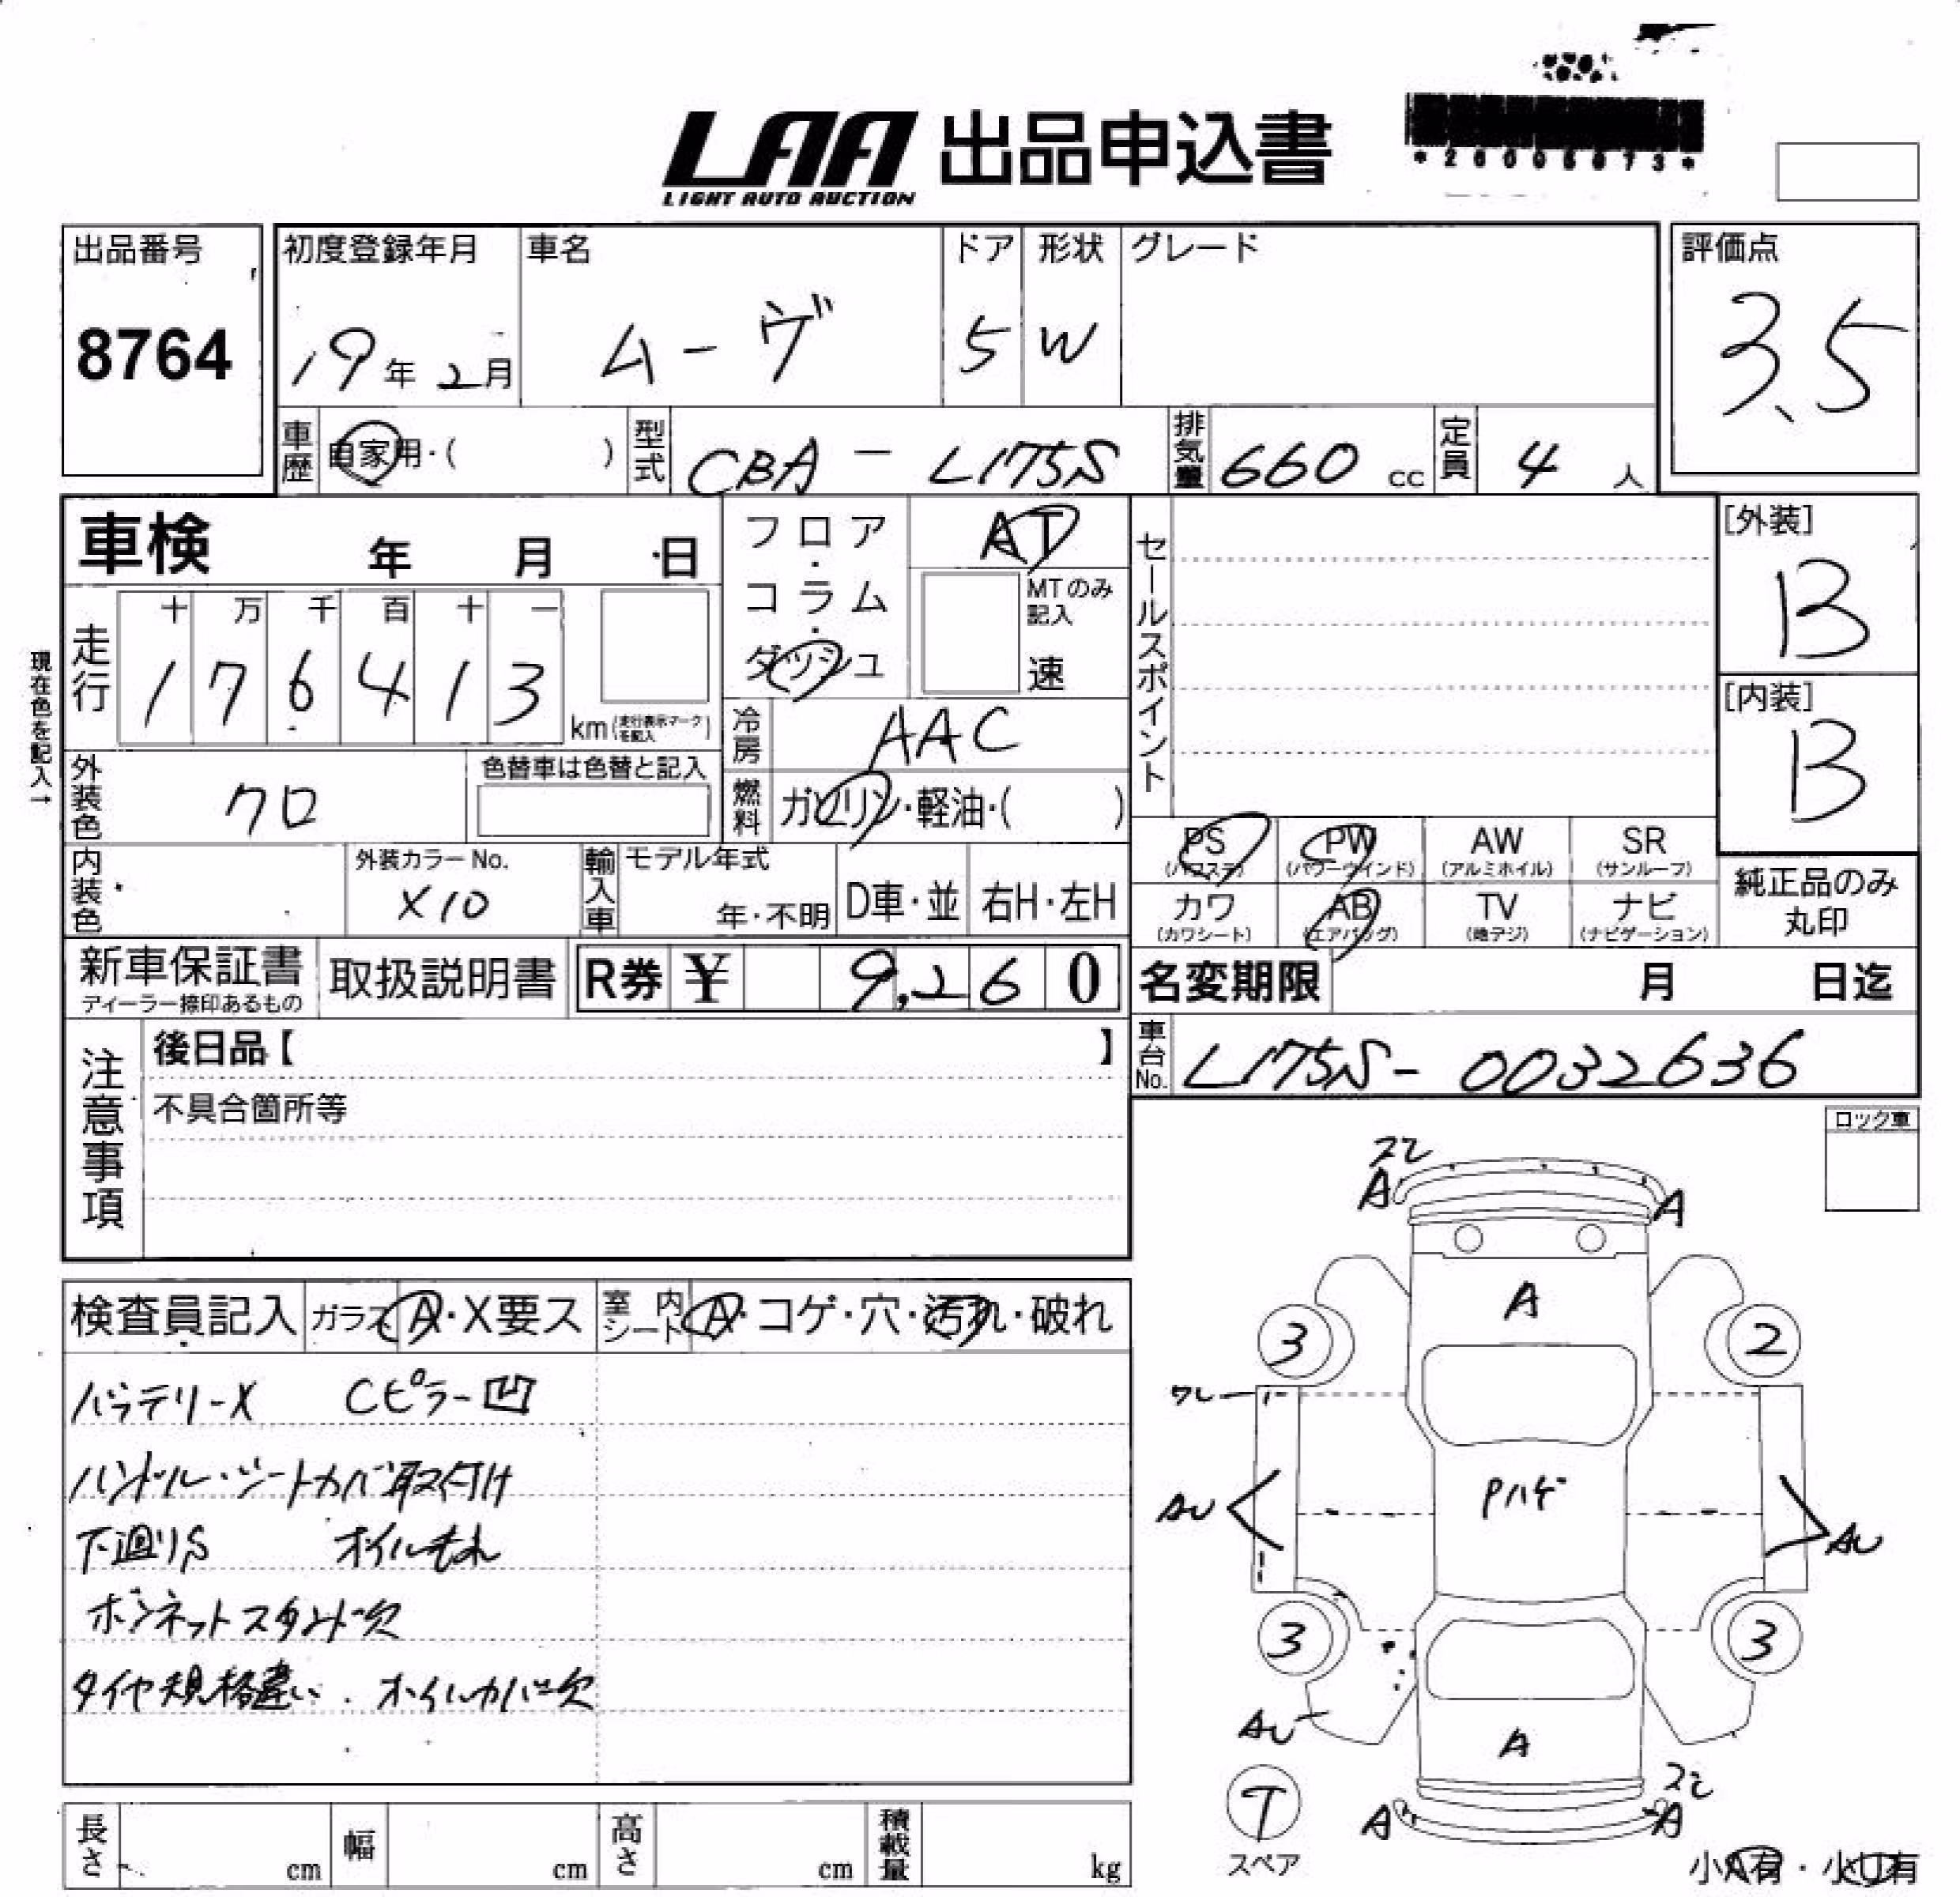 LAA 出品申込書
LIGHT AUTO AUCTION
出品番号 初度登録年月 車名 ドア 形状 グレード 評価点
8764 19年2月 ムーヴ 5 W 3.5
車歴 自家用・( ) 型式 CBA - L175S 排気量 660 cc 定員 4 人
車検 年 月 日 フロア・コラム・ダッシュ AT セールスポイント [外装]
B
MTのみ記入
速
走行 十 万 千 百 十 一
1 7 6 4 1 3 km (走行表示マークを記入)
現在色を記入→
冷房 AAC
[内装]
B
外装色 クロ 色替車は色替と記入
燃料 ガソリン・軽油・( )
PS (パワステ) PW (パワーウインド) AW (アルミホイル) SR (サンルーフ)
カワ (カワシート) AB (エアバッグ) TV (地デジ) ナビ (ナビゲーション)
純正品のみ丸印
内装色 外装カラーNo. X10 輸入車 モデル年式 年・不明 D車・並 右H・左H
新車保証書 ディーラー捺印あるもの 取扱説明書 R券 ¥ 9,260 名変期限 月 日迄
注意事項 後日品【 】
車台No. L175S-0032636
不具合箇所等
ロック車
検査員記入 ガラス A・X要ス 室内シート A・コゲ・穴・汚れ・破れ
バッテリーX Cピラー凹
ハンドル・シートカバー取付け
下廻りS オイルもれ
ボンネットスタンド欠
タイヤ規格違い. ホイルカバー欠
スレ
A A
A
3 2
ワレ
Pハゲ
AU AU
3 3
AU
A
スレ
A A
T
スペア
小A有・小U有
長さ cm 幅 cm 高さ cm 積載量 kg